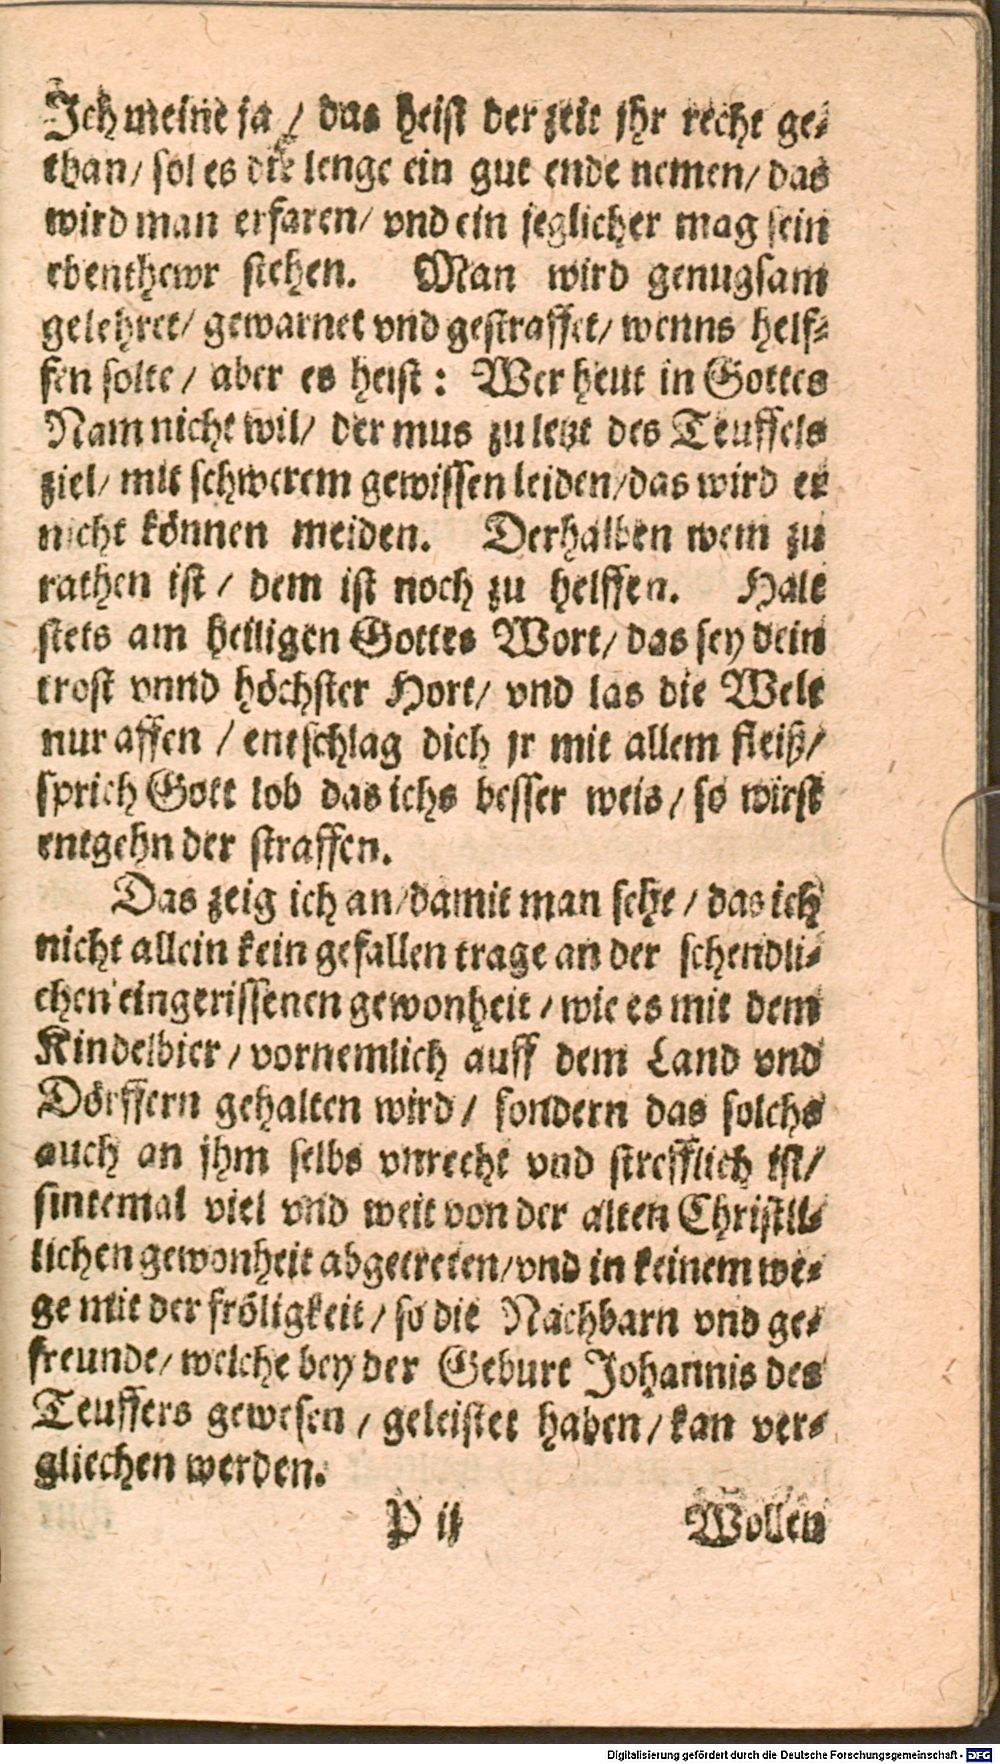 Ich meine ja / das heist der zeit jhr recht ge-
than / sol es die lenge ein gut ende nemen / das
wird man erfaren / vnd ein jeglicher mag sein
ebenthewr stehen. Man wird genugsam
gelehret / gewarnet vnd gestraffet / wenns helf-
fen solte / aber es heist: Wer heut in Gottes
Nam nicht wil / der mus zu letzt des Teuffels
ziel / mit schwerem gewissen leiden / das wird er
nicht können meiden. Derhalben wem zu
rathen ist / dem ist noch zu helffen. Halt
stets am heiligen Gottes Wort / das sey dein
trost vnnd höchster Hort / vnd las die Welt
nur affen / entschlag dich jr mit allem fleiß /
sprich Gott lob das ichs besser weis / so wirst
entgehn der straffen.
Das zeig ich an / damit man sehe / das ich
nicht allein kein gefallen trage an der schendli-
chen eingerissenen gewonheit / wie es mit dem
Kindelbier / vornemlich auff dem Land vnd
Dörffern gehalten wird / sondern das solchs
auch an jhm selbs vnrecht vnd strefflich ist /
sintemal viel vnd weit von der alten Christli-
lichen gewonheit abgetreten / vnd in keinem we-
ge mit der fröligkeit / so die Nachbarn vnd ge-
freunde / welche bey der Geburt Johannis des
Teuffers gewesen / geleistet haben / kan ver-
gliechen werden.
P ij Wollen
Digitalisierung gefördert durch die Deutsche Forschungsgemeinschaft - DFG